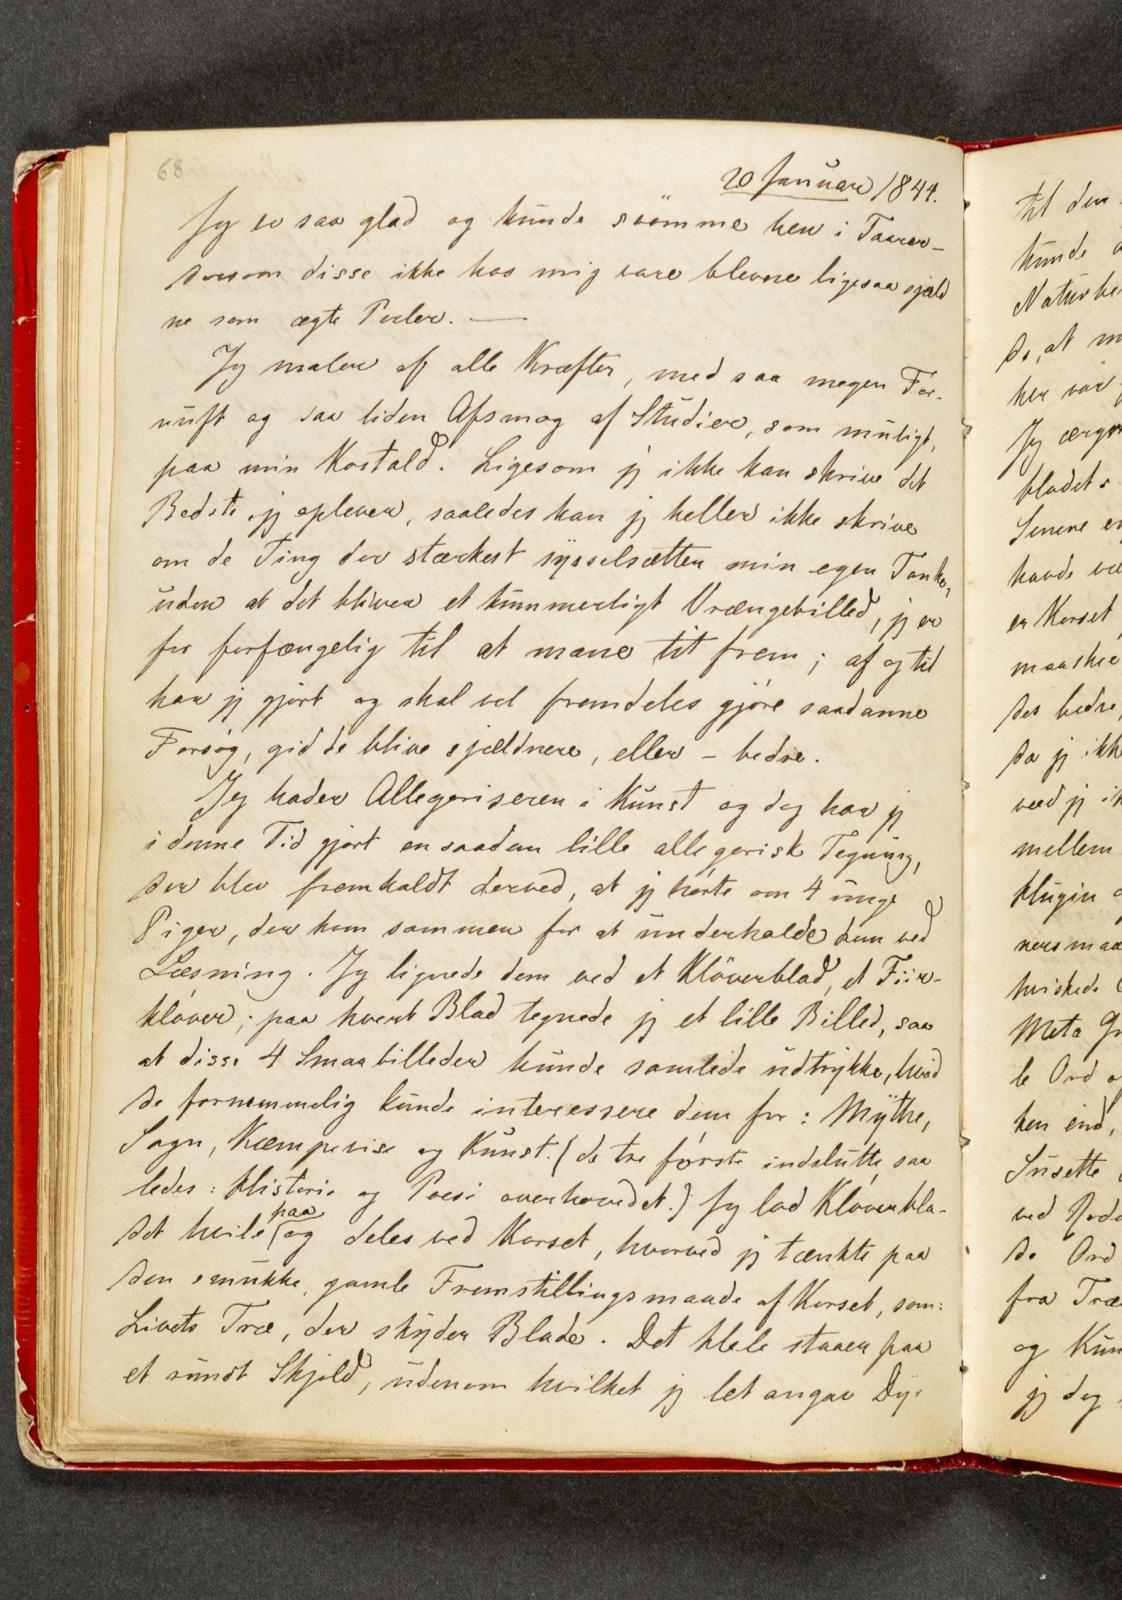 68
20 Januar 1844.
Jeg er saa glad og kunde svömme hen i Taarer –
dersom disse ikke hos mig vare blevne ligesaa sjeld
ne som ægte Perler. —
Jeg maler af alle Kræfter, med saa megen For-
nuft og saa liden Afsmag af Studier, som muligt,
paa min Kostald. Ligesom jeg ikke kan skrive det
Bedste, jeg oplever, saaledes kan jeg heller ikke skrive
om de Ting der stærkest sysselsætter min egen Tanke,
uden at det bliver et kummerligt Vrængebilled, jeg er
for forfængelig til at mane tit frem; af og til
har jeg gjort og skal vel fremdeles gjöre saadanne
Forsøg, gid de blive sjældnere, eller – bedre.
Jeg hader Allegoriseren i Kunst og dog har jeg
i denne Tid gjort en saadan lille allegorisk Tegning,
der blev fremkaldt derved, at jeg hørte om 4 unge
Piger, der kom sammen for at underholde dem ved
Læsning. Jeg lignede dem ved et Klöverblad, et Fiir-
kløver; paa hvert Blad tegnede jeg et lille Billed, saa
at disse 4 Smaabilleder kunde samlede udtrykke, hvad
de fornemmelig kunde interessere dem for: Mythe,
Sagn, Kæmpevise og Kunst. (de tre første indslutte saa
ledes: Historie og Poesi overhovedet.) Jeg lod Kløverbla-
det hvile paa og deles ved Korset, hvorved jeg tænkte paa
den smukke, gamle Fremstillingsmaade af Korset, som:
Livets Træ, der skyder Blade. Det Hele staaer paa
et rundt Skjold, udenom hvilket jeg let angav Dy-
til den
kunde
her var
Jeg
bladets
Senere
havde
er Korset
maaskee
det bedre
da jeg ikke
ved jeg
mellem
hviskede
Meta
le Ord
hen
Susette
ved
de Ord
fra Træ
og
jeg dog